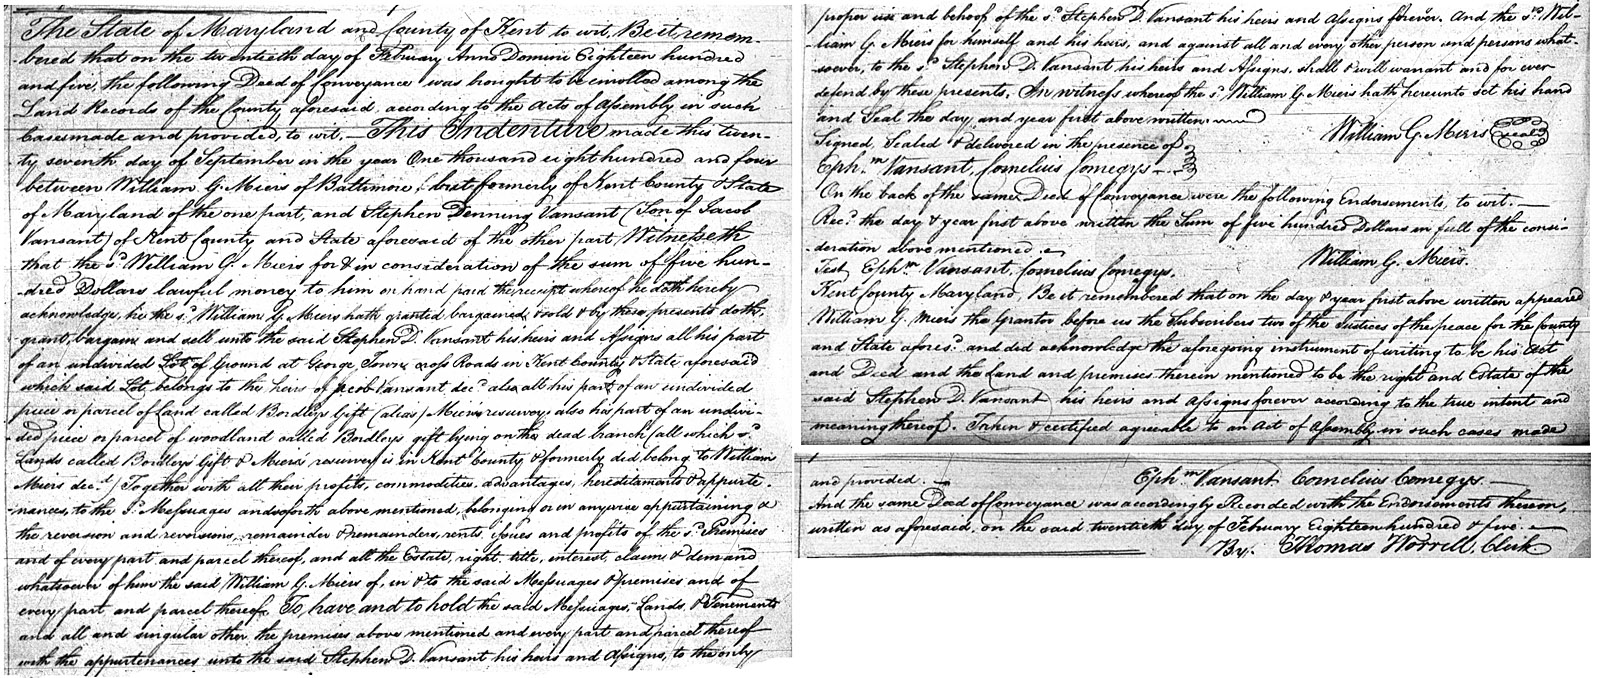 The State of Maryland and County of Kent to wit, Be it remem-
bered that on the twentieth day of February Anno Domini Eighteen hundred
and five, the following Deed of Conveyance was brought to be enrolled among the
Land Records of the County aforesaid, according to the Acts of Assembly in such
Cases made and provided, to wit. — This Indenture made this twen-
ty seventh day of September in the year One thousand eight hundred and four
between William G. Miers of Baltimore, but formerly of Kent County & State
of Maryland of the one part, and Stephen Denning Vansant (Son of Jacob
Vansant) of Kent County and State aforesaid of the other part, Witnesseth
that the sd. William G. Miers for & in consideration of the sum of five hun-
-dred Dollars lawful money to him in hand paid the receipt whereof he doth hereby
acknowledge, he the sd. William G. Miers hath granted bargained & sold & by these presents doth,
grant, bargain and sell unto the said Stephen D. Vansant his heirs and Assigns all his part
of an undivided Lot of Ground at George Town cross Roads in Kent County & State aforesaid
which said Lot belongs to the heirs of Jacob Vansant decd. also all his part of an undivided
piece or parcel of Land called Bordleys Gift (alias) Miers resurvey, also his part of an undivi-
ded piece or parcel of woodland called Bordleys gift lying on the dead branch (all which sd.
Lands called Bordleys Gift & Miers resurvey is in Kent County & formerly did belong to William
Miers decd.) Together with all their profits, commodities, advantages, hereditaments & appurte-
nances, to the sd. Messuages and worth above mentioned, belonging or in anywise appurtaining &
the reversion and reversions, remainder & remainders, rents, issues and profits of the sd. Premises
and of every part and parcel thereof, and all the Estate, right title, interest, claim & demand
whatsoever of him the said William G. Miers of, in & to the said Messuages & premises and of
every part and parcel thereof. To have and to hold the said Messuages, Lands & Tenements
and all and singular other the premises above mentioned and every part and parcel thereof
with the appurtenances unto the said Stephen D. Vansant his heirs and Assigns, to the only
proper use and behoof of the sd. Stephen D. Vansant his heirs and Assigns forever. And the sd. Wil-
-liam G. Miers for himself and his heirs, and against all and every other person and persons what-
soever, to the sd. Stephen D. Vansant his heirs and Assigns, shall & will warrant and for ever
defend by these presents. In witness whereof the sd. William G. Miers hath hereunto set his hand
and Seal the day and year first above written.
William G. Miers Seal
Signed, Sealed & delivered in the presence of
Ephm. Vansant, Cornelius Comegys —
On the back of the same Deed of Conveyance were the following Endorsements, to wit. —
Recd. the day & year first above written the Sum of five hundred Dollars in full of the consi-
-deration above mentioned.
William G. Miers.
Test, Ephm. Vansant, Cornelius Comegys.
Kent County Maryland, Be it remembered that on the day & year first above written appeared
William G. Miers the Grantor before us the Subscribers two of the Justices of the peace for the County
and State aforesd. and did acknowledge the aforegoing instrument of writing to be his Act
and Deed and the Land and premises therein mentioned to be the right and Estate of the
said Stephen D. Vansant his heirs and Assigns forever according to the true intent and
meaning thereof. Taken & certified agreable to an Act of Assembly in such cases made
and provided. — Ephm. Vansant Cornelius Comegys. —
And the same Deed of Conveyance was accordingly Recorded with the Endorsements thereon,
written as aforesaid, on the said twentieth day of February Eighteen hundred & five. —
By. Thomas Worrell, Clerk.